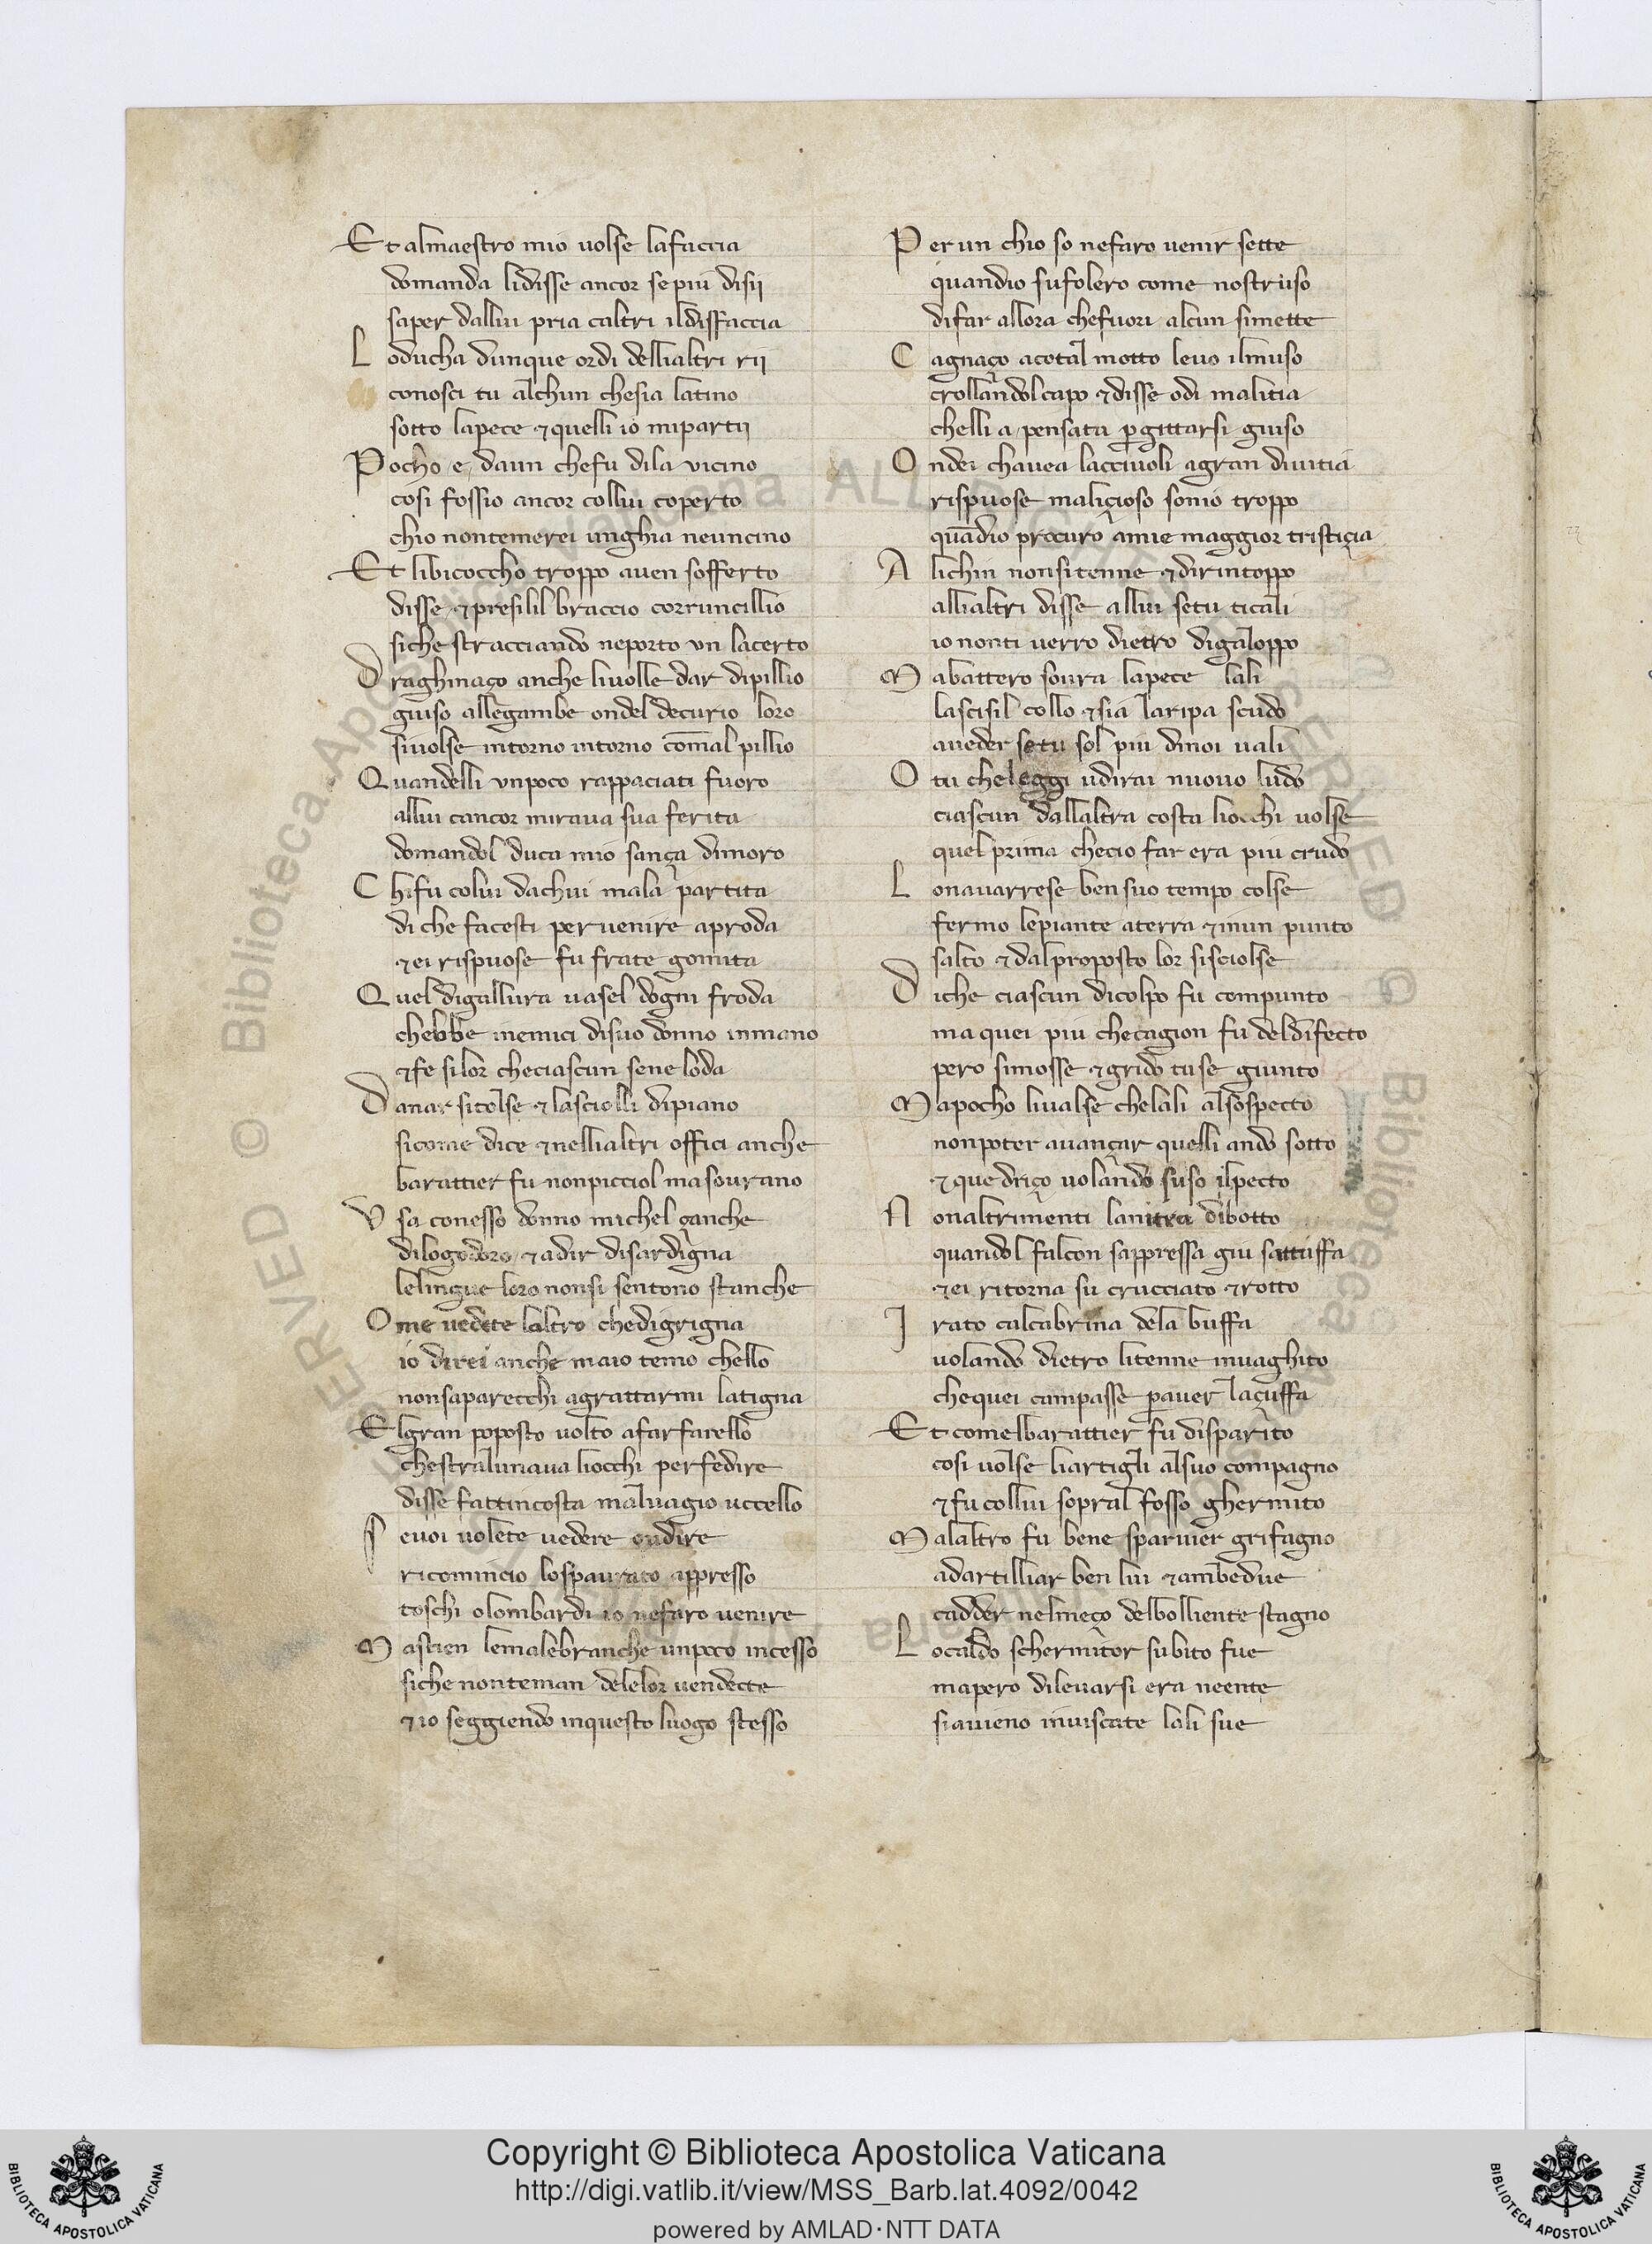 Et almaestro mio uolse lafaccia
domanda lidisse ancor sepiu disij
saper dallui pria caltri ildisfaccia
Loducha dunque ordi dellialtri rij
conosci tu alchun chesia latino
sotto lapece & quelli io mipartij
Pocho e daun chefu dila vicino
cosi fossio ancor collui coperto
chio nontemerei unghia neuncino
Et libicoccho troppo auen sofferto
disse & presilil braccio corruncillio
siche stracciando neporto vn lacerto
Draghinaço anche liuolle dar dipillio
giuso allegambe ondel decurio loro
siuolse intorno intorno comal pillio
Quandelli vnpoco rappaciati fuoro
allui cancor miraua sua ferita
domandol duca mio sança dimoro
Chifu colui dachui mala partita
di che facesti per uenire aproda
& ei rispuose fu frate gomita
Quel digallura uasel dogni froda
chebbe inemici disuo donno inmano
& fe silor checiascun sene loda
Danar sitolse & lasciolli dipiano
sicome dice & nellialtri offici anche
barattier fu nonpicciol masourano
Vsa conesso donno michel çanche
dilogodoro & adir disardigna
lelingue loro nonsi sentono stanche
Ome uedete laltro chedigrigna
io direi anche maio temo chello
nonsaparecchi agrattarmi latigna
Elgran poposto uolto afarfarello
chestralunaua liocchi perfedire
disse fattincosta maluagio uccello
Seuoi uolete uedere oudire
ricomincio lospaurato appresso
toschi olombardi io nefaro uenire
Mastien lemalebranche unpoco incesso
siche nonteman delelor uendecte
& io seggiendo inquesto luogo stesso
Per un chio so nefaro uenir sette
quandio sufolero come nostruso
difar allora chefuori alcun simette
Cagnaço acotal motto leuo ilmuso
crollandol capo & disse odi malitia
chelli a pensata p gittarsi giuso
Ondei chauea lacciuoli agran diuitia
rispuose maliçioso sonio troppo
quādio procuro amie maggior tristiçia
Alichin nonsitenne & dirintoppo
allialtri disse allui setu ticali
io nonti uerro dietro digaloppo
Mabattero soura lapece lali
lascisil collo & sia laripa scudo
aueder setu sol piu dinoi uali
O tu cheleggi udirai nuouo ludo
ciascun dallaltra costa liocchi uolse
quel prima checio far era piu crudo
Lonauarrese ben suo tempo colse
fermo lepiante aterra & inun punto
salto & dalproposto lor sisciolse
Diche ciascun dicolpo fu compunto
ma quei piu checagion fu deldifecto
pero simosse & grido tuse giunto
Mapocho liualse chelali alsospecto
nonpoter auançar quelli ando sotto
& que driço uolando suso ilpecto
Nonaltrimenti lanitra dibotto
quandol falcon sappressa giu sattuffa
& ei ritorna su crucciato & rotto
Irato calcabrina dela buffa
uolando dietro litenne inuaghito
chequei campasse p auer laçuffa
Et comelbarattier fu disparito
cosi uolse liartigli alsuo compagno
& fu collui sopral fosso ghermito
Malaltro fu bene sparuier grifagno
adartilliar ben lui & ambedue
cadder nelmeço delbolliente stagno
Localdo schermitor subito fue
mapero dileuarsi era neente
siauieno inuiscate lali sue
Copyright © Biblioteca Apostolica Vaticana
http://digi.vatlib.it/view/MSS_Barb.lat.4092/0042
powered by AMLAD·NTT DATA
BIBLIOTECA APOSTOLICA VATICANA
BIBLIOTECA APOSTOLICA VATICANA